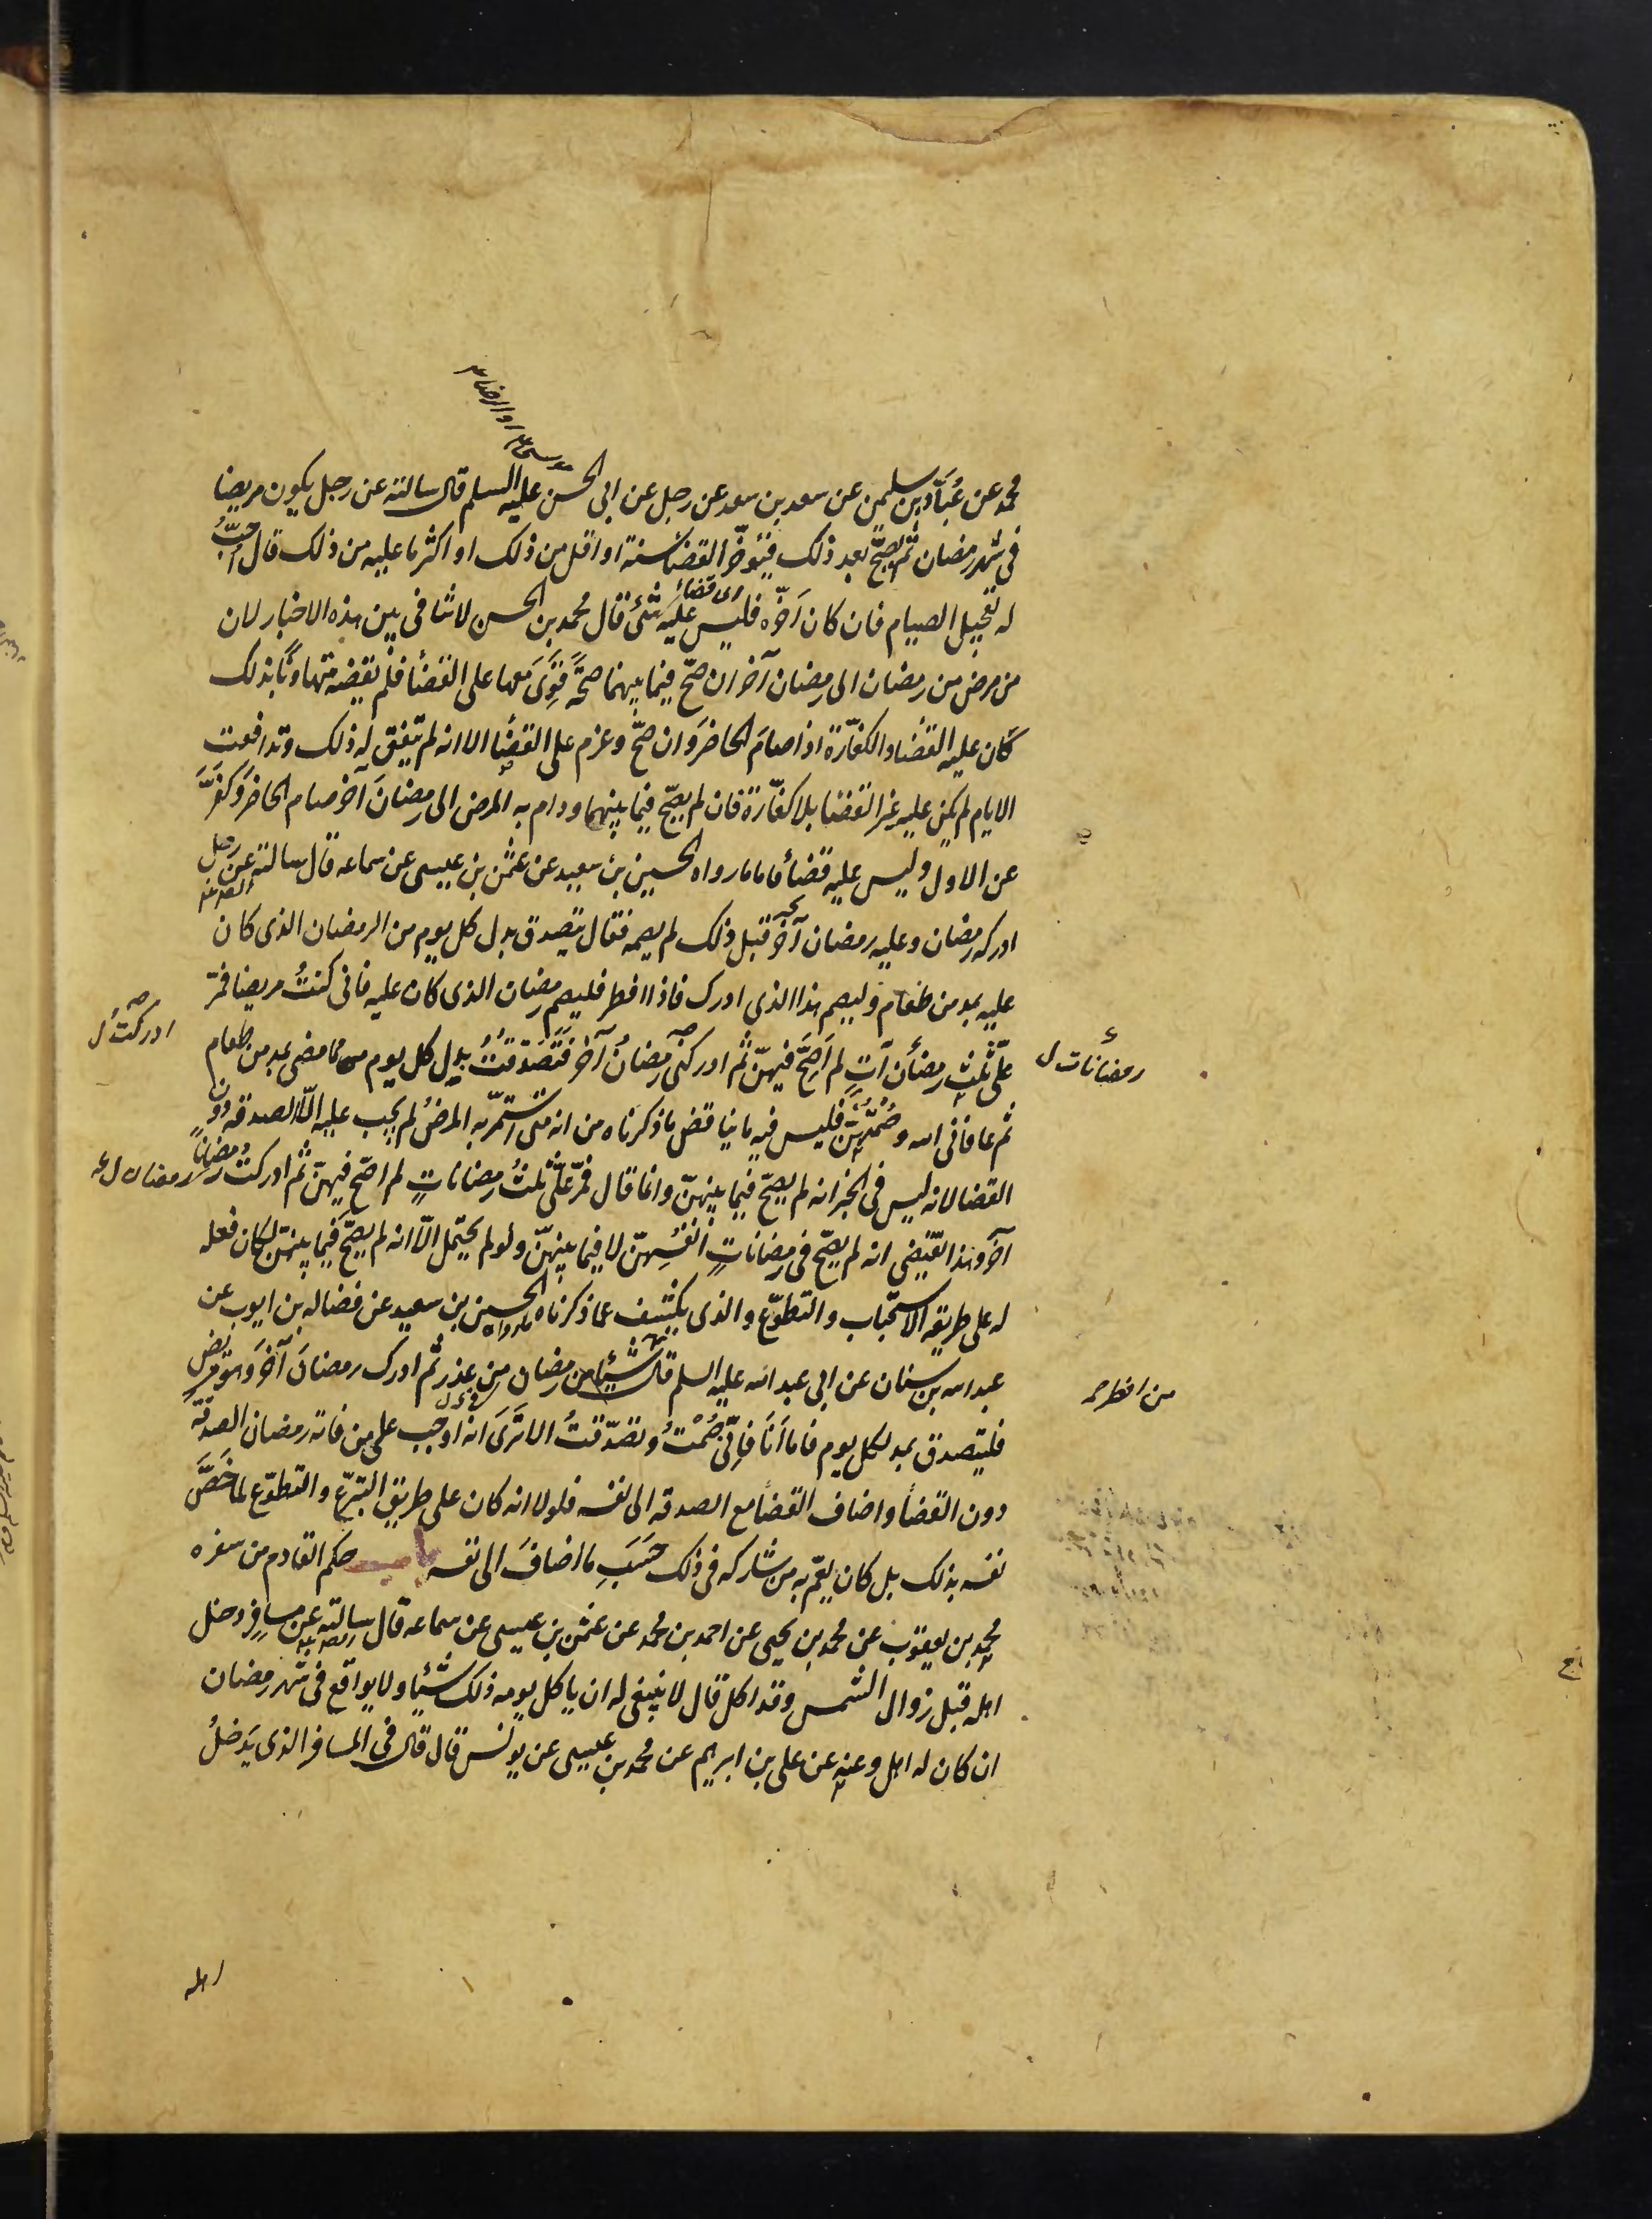 موسى ع او الرضا ع
محمد عن عُبَّاد بن سليمن عن سعد بن سعد عن رجل عن ابى الحسن عليه السلم قال سالته عن رجل يكون مريضا
فى شهر رمضان ثم يصحّ بعد ذلك فيؤخّر القضا سنة او اقل من ذلك او اكثر ما عليه من ذلك قال اُحبّ
له تعجيل الصيام فان كان اَخّره فليس عليه شئ قال محمد بن الحسن لا تنافى بين هذه الاخبار لان
اى قضاء
من مرض من رمضان الى رمضان آخر ان صحّ فيما بينهما صحّةً قَوِىَ معها على القضأ فلم يقضه متهاونًا بذلك
كان عليه القضا والكفّارة اذا صامَ الحاضرَ وان صحّ وعزم على القضأ الا انه لم يتفق له ذلك وتدافعت
الايام لم يكن عليه غير القضا بلا كفّارة فان لم يصحّ فيما بينهما ودام به المرض الى رمضانَ آخر صام الحاضرَ وكفَّرَ
عن الاول وليس عليه قضأ فاما ما رواه الحسين بن سعيد عن عثمن بن عيسى عن سماعه قال سالته عن رجل
ادركه رمضان وعليه رمضان آخر قبل ذلك لم يصمه فقال يتصدق بدل كل يوم من الرمضان الذى كان
عليه بمد من طعام وليصم هذا الذي ادرك فاذا افطر فليصم رمضان الذى كان عليه فانى كنتُ مريضا فمرّ
علىّ ثلث رمضان آت لم اَصِحَّ فيهنّ ثم ادركنى رمضانُ آخر فَتَصَدّقتُ بدل كل يوم مما مضى بمد من طعام
رمضانات ل
ادركتُ ل
ثم عافانى الله وصُمْتُهنّ فليس فيه ما يناقض ما ذكرناه من انه متى استمرّ به المرضُ لم يجب عليه الّا الصدقه دون
القضا لانه ليس فى الخبر انه لم يصحّ فيما بينهنّ وانما قال فمرّ علىّ ثلثُ رمضاناتٍ لم اصّح فيهنّ ثم ادركتُ رمضانًا
رمضان ل
آخر وهذا يقتضي انه لم يصحّ فى رمضاناتٍ انفُسِهنّ لا فيما بينهنّ ولو لم يحتمل الّا انه لم يصحّ فيما بينهنّ لكان فعله
له على طريقه الاستحباب والتطوّع والذى يكشف عما ذكرناه ما رواه الحسين بن سعيد عن فضاله بن ايوب عن
عبد الله بن سنان عن ابى عبد الله عليه السلم قال شيئا من رمضان من عذر ثم ادرك رمضانَ آخرَ وهو مريض
من افطر
فليتصدق بمد لكل يوم فاما اَنَا فاِنّى صُمْتُ وتصدّقتُ الا تَرَىَ انه اوجب على من فاته رمضان الصدقة
دون القضأ واضاف القضأ مع الصدقه الى نفسه فلولا انه كان على طريق التبرّع والتطوّع لما خَصَّ
نفسه بذلك بل كان يعمّ به من شاركه فى ذلك حَسَبِ ما اضافَ الى نفسه باب حكم القادم من سفره
محمد بن يعقوب عن محمد بن يحيى عن احمد بن محمد عن عثمن بن عيسى عن سماعه قال سالته عن مسافر دخل
اهله قبل زوال الشمس وقد اكل قال لا ينبغى له ان ياكل يومه ذلك شيئا ولا يواقع فى شهر رمضان
ان كان له اهل وعنه عن على بن ابرهيم عن محمد بن عيسى عن يونس قال قال فى المسافر الذى يَدخلُ
اهله